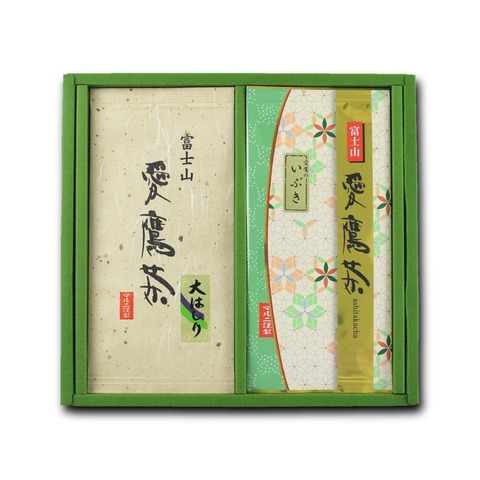 富士山
愛鷹茶
大はしり
マルニ謹製
いぶき
マルニ謹製
富士山
愛鷹茶
ashitakacha